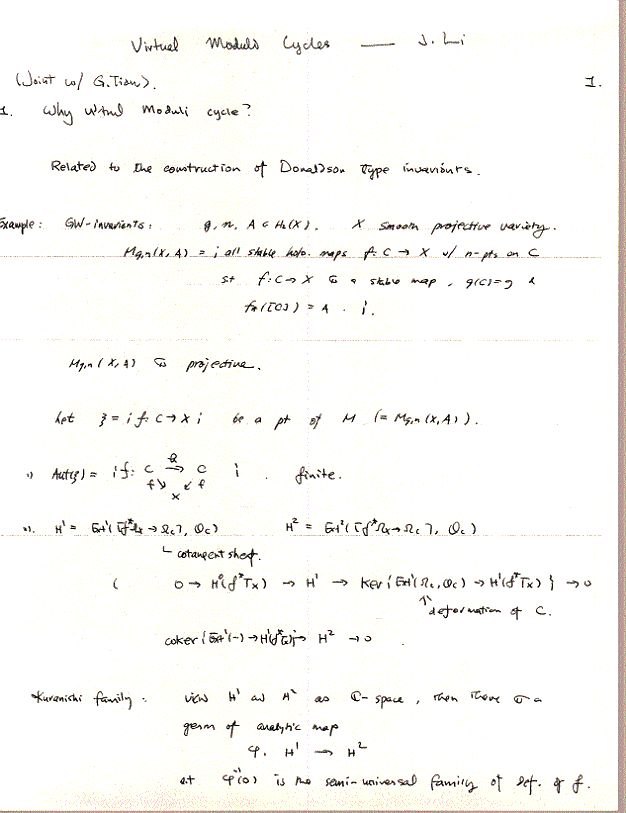 Virtual Moduli Cycles — J. Li
(Joint w/ G. Tian). 1.
1. Why virtual moduli cycle?
Related to the construction of Donaldson type invariants.
Example: GW-invariants: g, n, A ∈ H₂(X). X smooth projective variety.
M_{g,n}(X, A) = { all stable holo. maps f: C → X w/ n-pts on C
st f: C → X is a stable map, g(C)=g &
f_*([C]) = A . }.
M_{g,n}(X, A) is projective.
Let ξ = { f: C → X } be a pt of M (= M_{g,n}(X, A)).
1) Aut(ξ) = { f: C → C } . finite.
f ↘ ↙ f
X
2). H¹ = Ext¹([f*Ω_X → Ω_C], O_C) H² = Ext²([f*Ω_X → Ω_C], O_C)
cotangent sheaf.
( 0 → H⁰(f*T_X) → H¹ → Ker { Ext¹(Ω_C, O_C) → H¹(f*T_X) } → 0
↑ deformation of C.
coker { Ext¹(–) → H¹(f*T_X) } → H² → 0
Kuranishi family: view H¹ and H² as ℂ-space, then there is a
germ of analytic map
φ. H¹ → H²
st φ⁻¹(0) is the semi-universal family of def. of f.